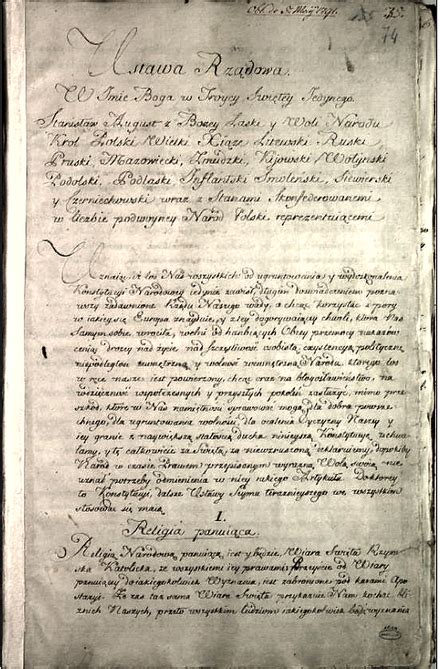 74
Ustawa Rządowa.
W Imie Boga w Troycy Świętey Jedynego.
Stanisław August z Bożey Łaski y Woli Narodu
Krol Polski Wielki Xiąże Litewski Ruski
Pruski, Mazowiecki, Zmudzki, Kijowski Wołyński
Podolski, Podlaski Inflantski Smoleński, Siewierski
y Czerniechowski wraz z Stanami Skonfederowanemi
w liczbie podwoyney Naród Polski reprezentuiącemi
Uznaiąc, iż los Nas wszystkich od ugruntowania y wydoskonalenia
Konstytucyi Narodowey iedynie zawisł, długim doświadczeniem pozna-
wszy zadawnione Rządu Naszego wady, a chcąc korzystać z pory
w iakiey się Europa znayduie, y z tey dogorywaiącey chwili, która Nas
Samym sobie wrociła, wolni od hańbiących Obcey przemocy nakazów
ceniąc drożey nad życie nad szczęśliwość osobistą, exystencyą polityczną
niepodległość zewnętrzną y wolność wewnętrzną Narodu, którego los
w ręce nasze iest powierzony, chcąc oraz na błogosławieństwo, na
wdzięczność współczesnych y przyszłych pokoleń zasłużyć, mimo prze-
szkód, które w Nas namiętności sprawować mogą, dla dobra powsze-
chnego, dla ugruntowania wolności, dla ocalenia Oyczyzny Naszey y
iey granic z naywiększą stałością ducha ninieyszą Konstytucyę uchwa-
lamy, y tę całkowicie za świętą, za niewzruszoną deklaruiemy, dopókiby
Naród w czasie Prawem przepisanym wyraźną Wolą swoią nie
uznał potrzeby odmienienia w niey iakiego Artykułu. Do którey
to Konstytucyi, dalsze Ustawy Seymu teraznieyszego we wszystkim
stosować się maią.
I.
Religia panuiąca.
Religią Narodową panuiącą iest y będzie, Wiara Święta Rzym-
ska Katolicka, ze wszystkiemi iey prawami, Przeyście od Wiary
panuiącey do iakiegokolwiek Wyznania, iest zabronione pod karami Apo-
stazyi. Że zaś ta sama Wiara Święta przykazuie Nam kochać bli-
źnich Naszych, przeto wszystkim ludziom iakiegokolwiek bądź wyznania